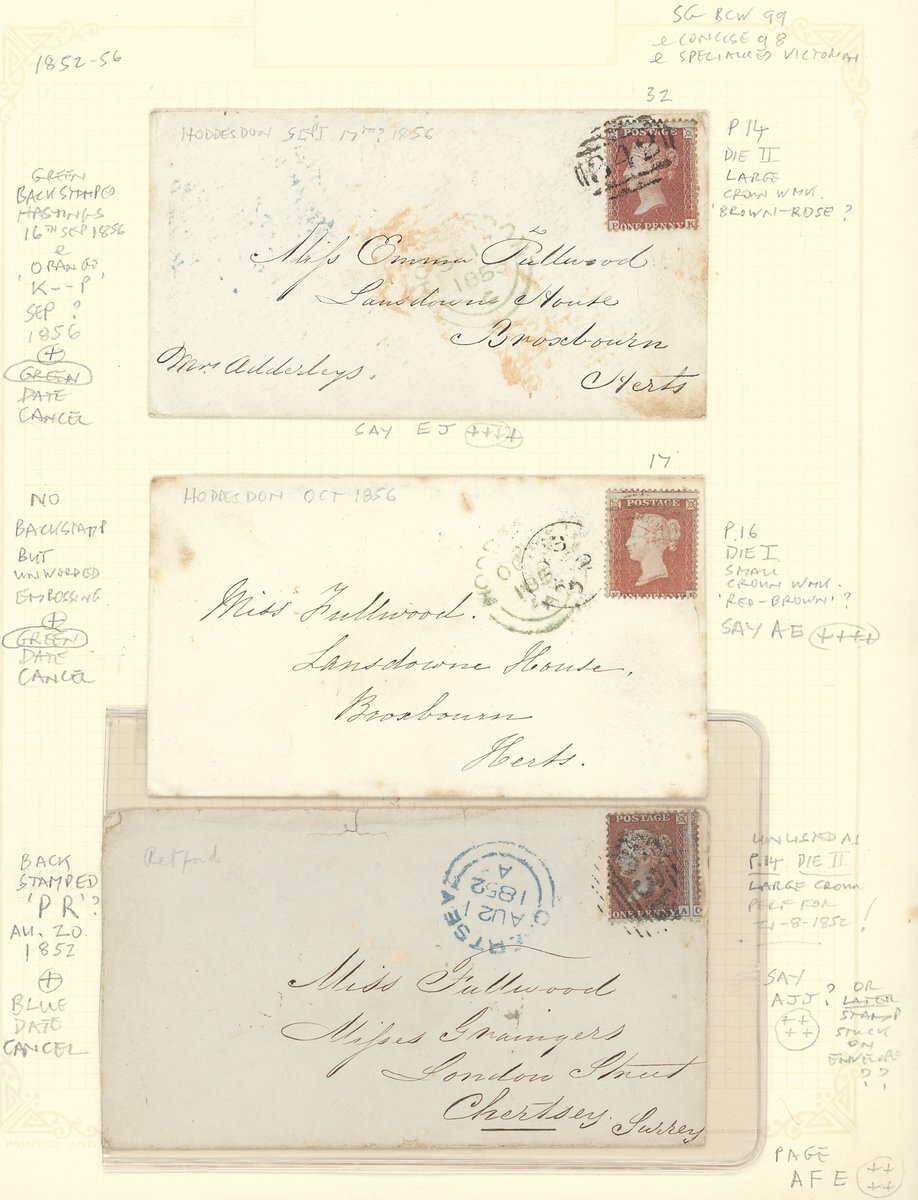 1852-56
SG BCW 99
e CONCISE 98
e SPECIALISED VICTORIAN
32
HODDESDON SEPT 17TH? 1856
342
POSTAGE
ONE PENNY K
Miss Emma Fullwood
Lansdowne House
Broxbourn
Herts
Mrs Adderleys.
GREEN
BACKSTAMPED
HASTINGS
16TH SEP 1856
e
'ORANGE
K--P'
SEP ?
1856
+
GREEN
DATE
CANCEL
P14
DIE II
LARGE
CROWN WMK.
'BROWN-ROSE'?
SAY EJ ++++
17
HODDESDON OCT 1856
POSTAGE
Miss Fullwood.
Lansdowne House,
Broxbourn
Herts.
NO
BACKSTAMP
BUT
UNWORDED
EMBOSSING
+
GREEN
DATE
CANCEL
P.16
DIE I
SMALL
CROWN WMK.
'RED-BROWN'?
SAY AE ++++
Retford
CHERTSEA
AU 21
1852
A
POSTAGE
ONE PENNY A
Miss Fullwood
Misses Graingers
London Street
Chertsey. Surrey
BACK
STAMPED
'PR'?
AU. 20
1852
+
BLUE
DATE
CANCEL
UNLISTED AS
P.14 DIE II
LARGE CROWN
PERF FOR
21-8-1852!
SAY
AJJ?
++
++
OR
LATER
STAMP
STUCK
ON
ENVELOPE
??
PRINTED AND
PAGE
AFE ++
++